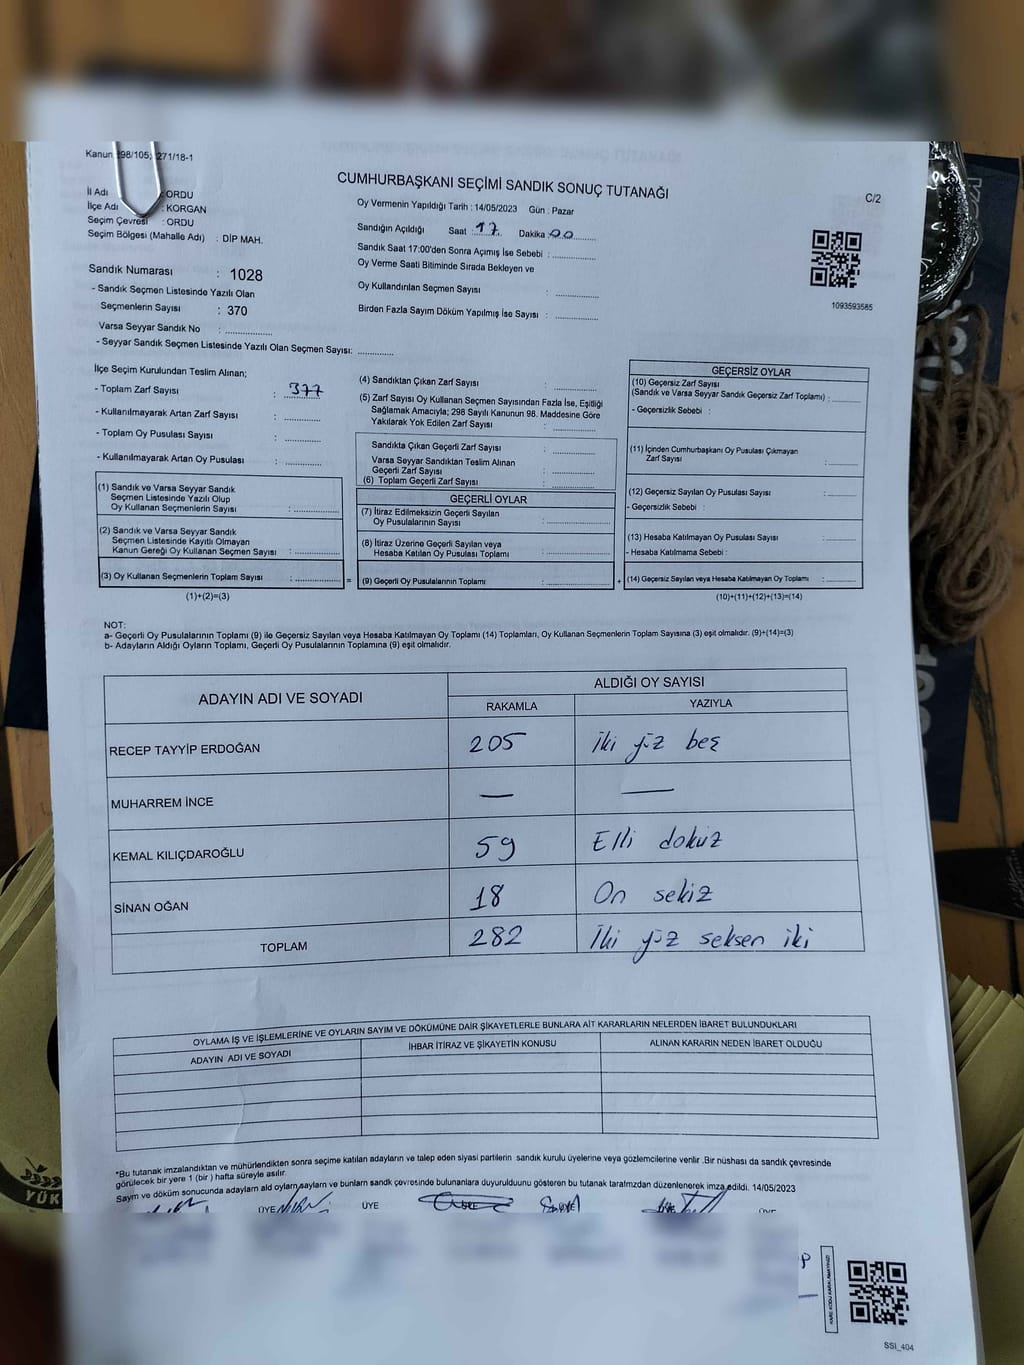 Kanun 298/105; 271/18-1
CUMHURBAŞKANI SEÇİMİ SANDIK SONUÇ TUTANAĞI
C/2
İl Adı : ORDU
İlçe Adı : KORGAN
Seçim Çevresi : ORDU
Seçim Bölgesi (Mahalle Adı) : DİP MAH.
Oy Vermenin Yapıldığı Tarih : 14/05/2023 Gün : Pazar
Sandığın Açıldığı Saat : 17 Dakika : 00
Sandık Saat 17:00'den Sonra Açımış İse Sebebi :
Oy Verme Saati Bitiminde Sırada Bekleyen ve
Oy Kullandırılan Seçmen Sayısı :
Birden Fazla Sayım Döküm Yapılmış İse Sayısı :
1093593585
Sandık Numarası : 1028
- Sandık Seçmen Listesinde Yazılı Olan
Seçmenlerin Sayısı : 370
Varsa Seyyar Sandık No :
- Seyyar Sandık Seçmen Listesinde Yazılı Olan Seçmen Sayısı:
İlçe Seçim Kurulundan Teslim Alınan;
- Toplam Zarf Sayısı : 377
- Kullanılmayarak Artan Zarf Sayısı :
- Toplam Oy Pusulası Sayısı :
- Kullanılmayarak Artan Oy Pusulası :
(1) Sandık ve Varsa Seyyar Sandık
Seçmen Listesinde Yazılı Olup
Oy Kullanan Seçmenlerin Sayısı :
(2) Sandık ve Varsa Seyyar Sandık
Seçmen Listesinde Kayıtlı Olmayan
Kanun Gereği Oy Kullanan Seçmen Sayısı :
(3) Oy Kullanan Seçmenlerin Toplam Sayısı : =
(1)+(2)=(3)
(4) Sandıktan Çıkan Zarf Sayısı :
(5) Zarf Sayısı Oy Kullanan Seçmen Sayısından Fazla İse, Eşitliği
Sağlamak Amacıyla; 298 Sayılı Kanunun 98. Maddesine Göre
Yakılarak Yok Edilen Zarf Sayısı :
Sandıkta Çıkan Geçerli Zarf Sayısı :
Varsa Seyyar Sandıktan Teslim Alınan
Geçerli Zarf Sayısı :
(6) Toplam Geçerli Zarf Sayısı :
GEÇERLİ OYLAR
(7) İtiraz Edilmeksizin Geçerli Sayılan
Oy Pusulalarının Sayısı :
(8) İtiraz Üzerine Geçerli Sayılan veya
Hesaba Katılan Oy Pusulası Toplamı :
(9) Geçerli Oy Pusulalarının Toplamı : +
GEÇERSİZ OYLAR
(10) Geçersiz Zarf Sayısı
(Sandık ve Varsa Seyyar Sandık Geçersiz Zarf Toplamı) :
- Geçersizlik Sebebi :
(11) İçinden Cumhurbaşkanı Oy Pusulası Çıkmayan
Zarf Sayısı :
(12) Geçersiz Sayılan Oy Pusulası Sayısı :
- Geçersizlik Sebebi :
(13) Hesaba Katılmayan Oy Pusulası Sayısı :
- Hesaba Katılmama Sebebi :
(14) Geçersiz Sayılan veya Hesaba Katılmayan Oy Toplamı :
(10)+(11)+(12)+(13)=(14)
NOT:
a- Geçerli Oy Pusulalarının Toplamı (9) ile Geçersiz Sayılan veya Hesaba Katılmayan Oy Toplamı (14) Toplamları, Oy Kullanan Seçmenlerin Toplam Sayısına (3) eşit olmalıdır. (9)+(14)=(3)
b- Adayların Aldığı Oyların Toplamı, Geçerli Oy Pusulalarının Toplamına (9) eşit olmalıdır.
ADAYIN ADI VE SOYADI ALDIĞI OY SAYISI
RAKAMLA YAZIYLA
RECEP TAYYİP ERDOĞAN 205 İki yüz beş
MUHARREM İNCE — —
KEMAL KILIÇDAROĞLU 59 Elli dokuz
SİNAN OĞAN 18 On sekiz
TOPLAM 282 İki yüz seksen iki
OYLAMA İŞ ve İŞLEMLERİNE VE OYLARIN SAYIM VE DÖKÜMÜNE DAİR ŞİKAYETLERLE BUNLARA AİT KARARLARIN NELERDEN İBARET BULUNDUKLARI
ADAYIN ADI VE SOYADI İHBAR İTİRAZ VE ŞİKAYETİN KONUSU ALINAN KARARIN NEDEN İBARET OLDUĞU
*Bu tutanak imzalandıktan ve mühürlendikten sonra seçime katılan adayların ve talep eden siyasi partilerin sandık kurulu üyelerine veya gözlemcilerine verilir .Bir nüshası da sandık çevresinde
görülecek bir yere 1 (bir ) hafta süreyle asılır.
Sayım ve döküm sonucunda adayların ald oylam sayların ve bunların sandk çevresinde bulunanlara duyurulduunu gösteren bu tutanak taralmzdan düzenlenerek imza edildi. 14/05/2023
ÜYE ÜYE
YÜK
SSI_404